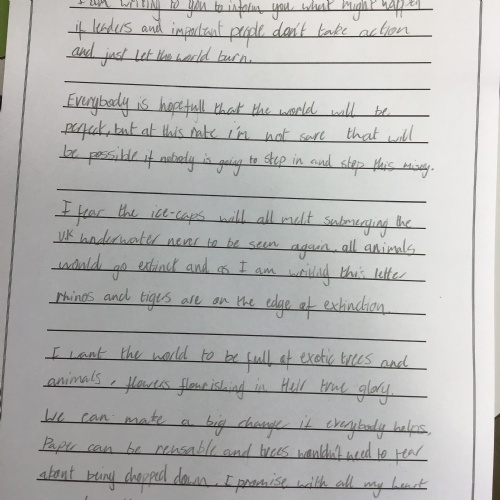 I am writing to you to inform you what might happen
if leaders and important people don't take action
and just let the world burn.
Everybody is hopefull that the world will be
perfect, but at this rate i'm not sure that will
be possible if nobody is going to step in and stop this misery.
I fear the ice-caps will all melt submerging the
UK underwater never to be seen again, all animals
would go extinct and as I am writing this letter
rhinos and tigers are on the edge of extinction.
I want the world to be full of exotic trees and
animals, flowers flourishing in their true glory.
We can make a big change if everybody helps.
Paper can be reusable and trees wouldn't need to fear
about being chopped down. I promise with all my heart